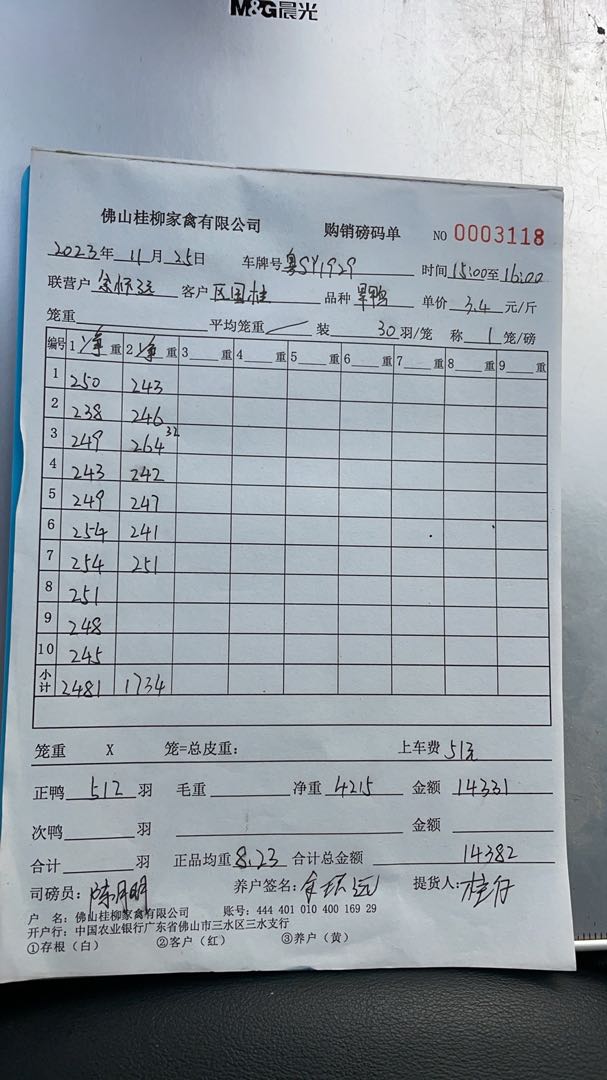 M&G晨光
佛山桂柳家禽有限公司 购销磅码单 NO 0003118
2023年 11月 25日 车牌号 粤SY1929 时间 15:00至 16:00
联营户 客户 区国桂 品种 单价 3.4 元/斤
笼重 平均笼重 装 30 羽/笼 称 1 笼/磅
编号 1 净 重 2 净 重 3 重 4 重 5 重 6 重 7 重 8 重 9 重
1 250 243
2 238 246
3 249 264 32
4 243 242
5 249 247
6 254 241
7 254 251
8 251
9 248
10 245
小计 2481 1734
笼重 X 笼=总皮重: 上车费 51元
正鸭 512 羽 毛重 净重 4215 金额 14331
次鸭 羽 金额
合计 羽 正品均重 8.23 合计总金额 14382
司磅员: 陈月明 养户签名: 提货人: 桂仔
户 名: 佛山桂柳家禽有限公司 账号: 444 401 010 400 169 29
开户行: 中国农业银行广东省佛山市三水区三水支行
①存根（白） ②客户（红） ③养户（黄）